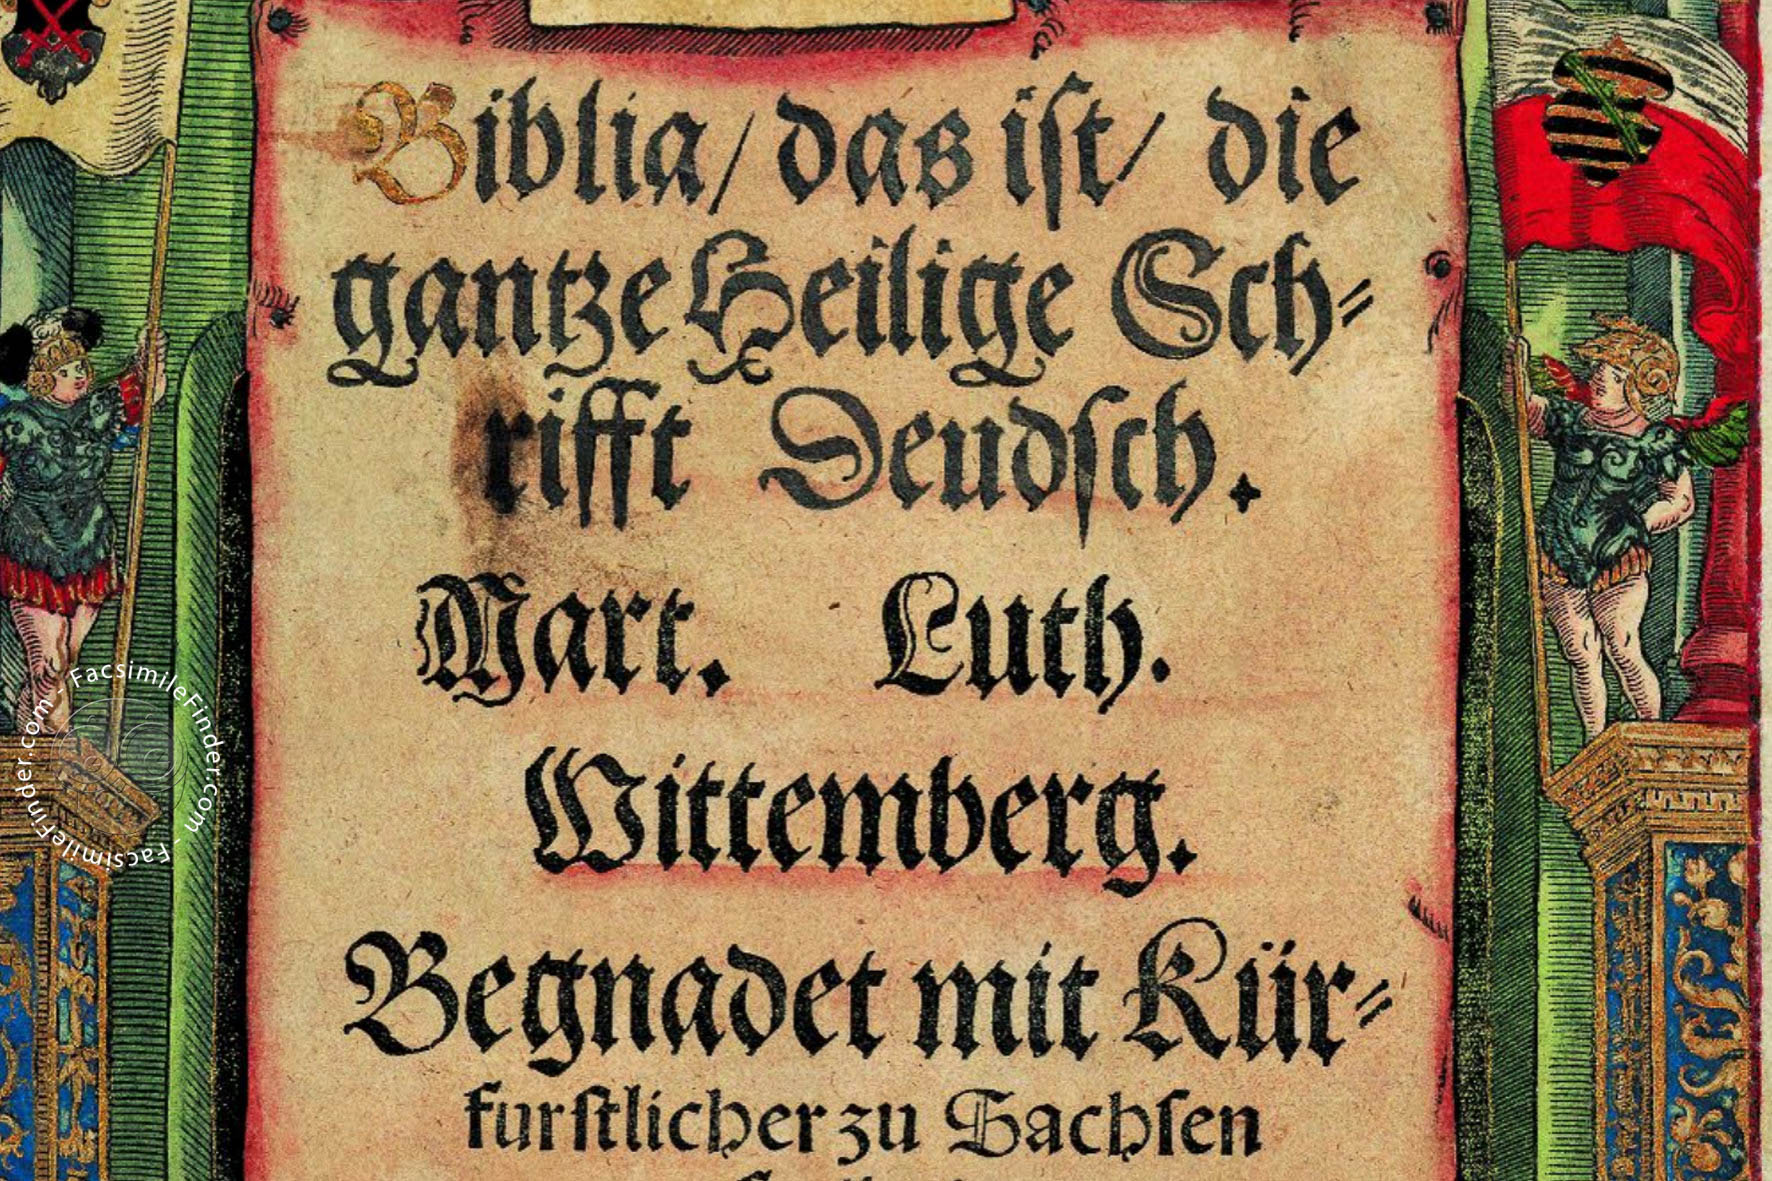 Biblia/ das iſt/ die
gantze Heilige Sch⸗
rifft Deudſch.
Mart. Luth.
Wittemberg.
Begnadet mit Kür⸗
furſtlicher zu Sachſen
FacsimileFinder.com - FacsimileFinder.com -